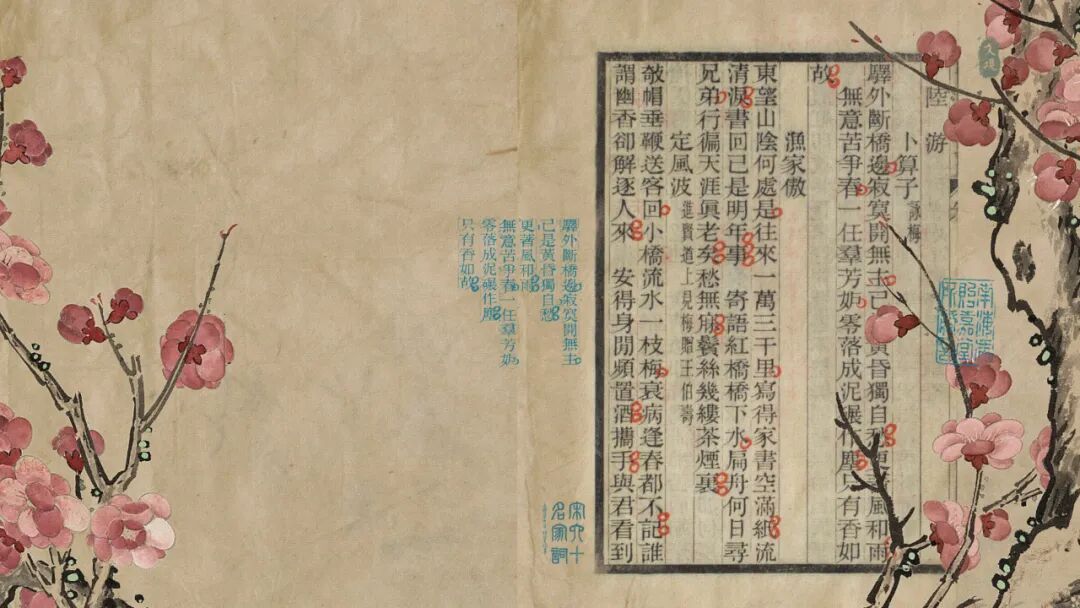 陸游
卜算子 詠梅
驛外斷橋邊寂寞開無主已黃昏獨自愁更風和雨
無意苦爭春一任羣芳妒零落成泥碾作塵只有香如
故
漁家傲
東望山陰何處是往來一萬三千里寫得家書空滿紙流
清淚書回已是明年事 寄語紅橋橋下水扁舟何日尋
兄弟行徧天涯眞老矣愁無寐鬢絲幾縷茶煙裏
定風波 進賢道上見梅贈王伯壽
敧帽垂鞭送客回小橋流水一枝梅衰病逢春都不記誰
謂幽香卻解逐人來 安得身閒頻置酒攜手與君看到
驛外斷橋邊寂寞開無主
已是黃昏獨自愁
更著風和雨
無意苦爭春一任羣芳妒
零落成泥碾作塵
只有香如故
宋六十
名家詞